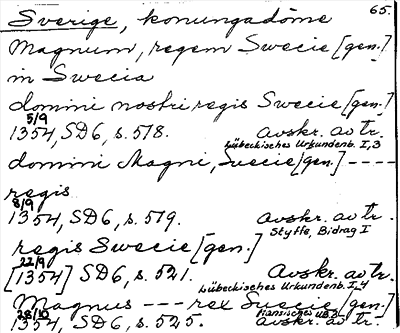 65.
Sverige, konungadöme
Magnum, regem Swecie [gen.]
in Swecia
domini nostri regis Swecie [gen.]
5/9
1354, SD6, s. 518. Avskr. av tr.
Lübeckisches Urkundenb. I,3
domini Magni, Suecie [gen.] ----
regis
8/9
1354, SD6, s. 519. Avskr. av tr.
Styffe, Bidrag I
regis Swecie [gen.]
22/9
[1354] SD6, s. 521. Avskr. av tr.
Lübeckisches Urkundenb. I,4
Magnus --- rex Suecie [gen.]
28/10 Hansisches UB 3
1354, SD6, s. 525. avskr. av tr.